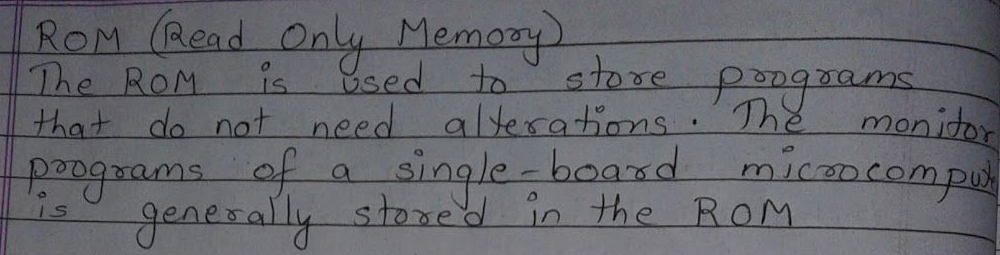 ROM (Read Only Memory)
The ROM is used to store programs
that do not need alterations. The monitor
programs of a single-board microcomput
is generally stored in the ROM